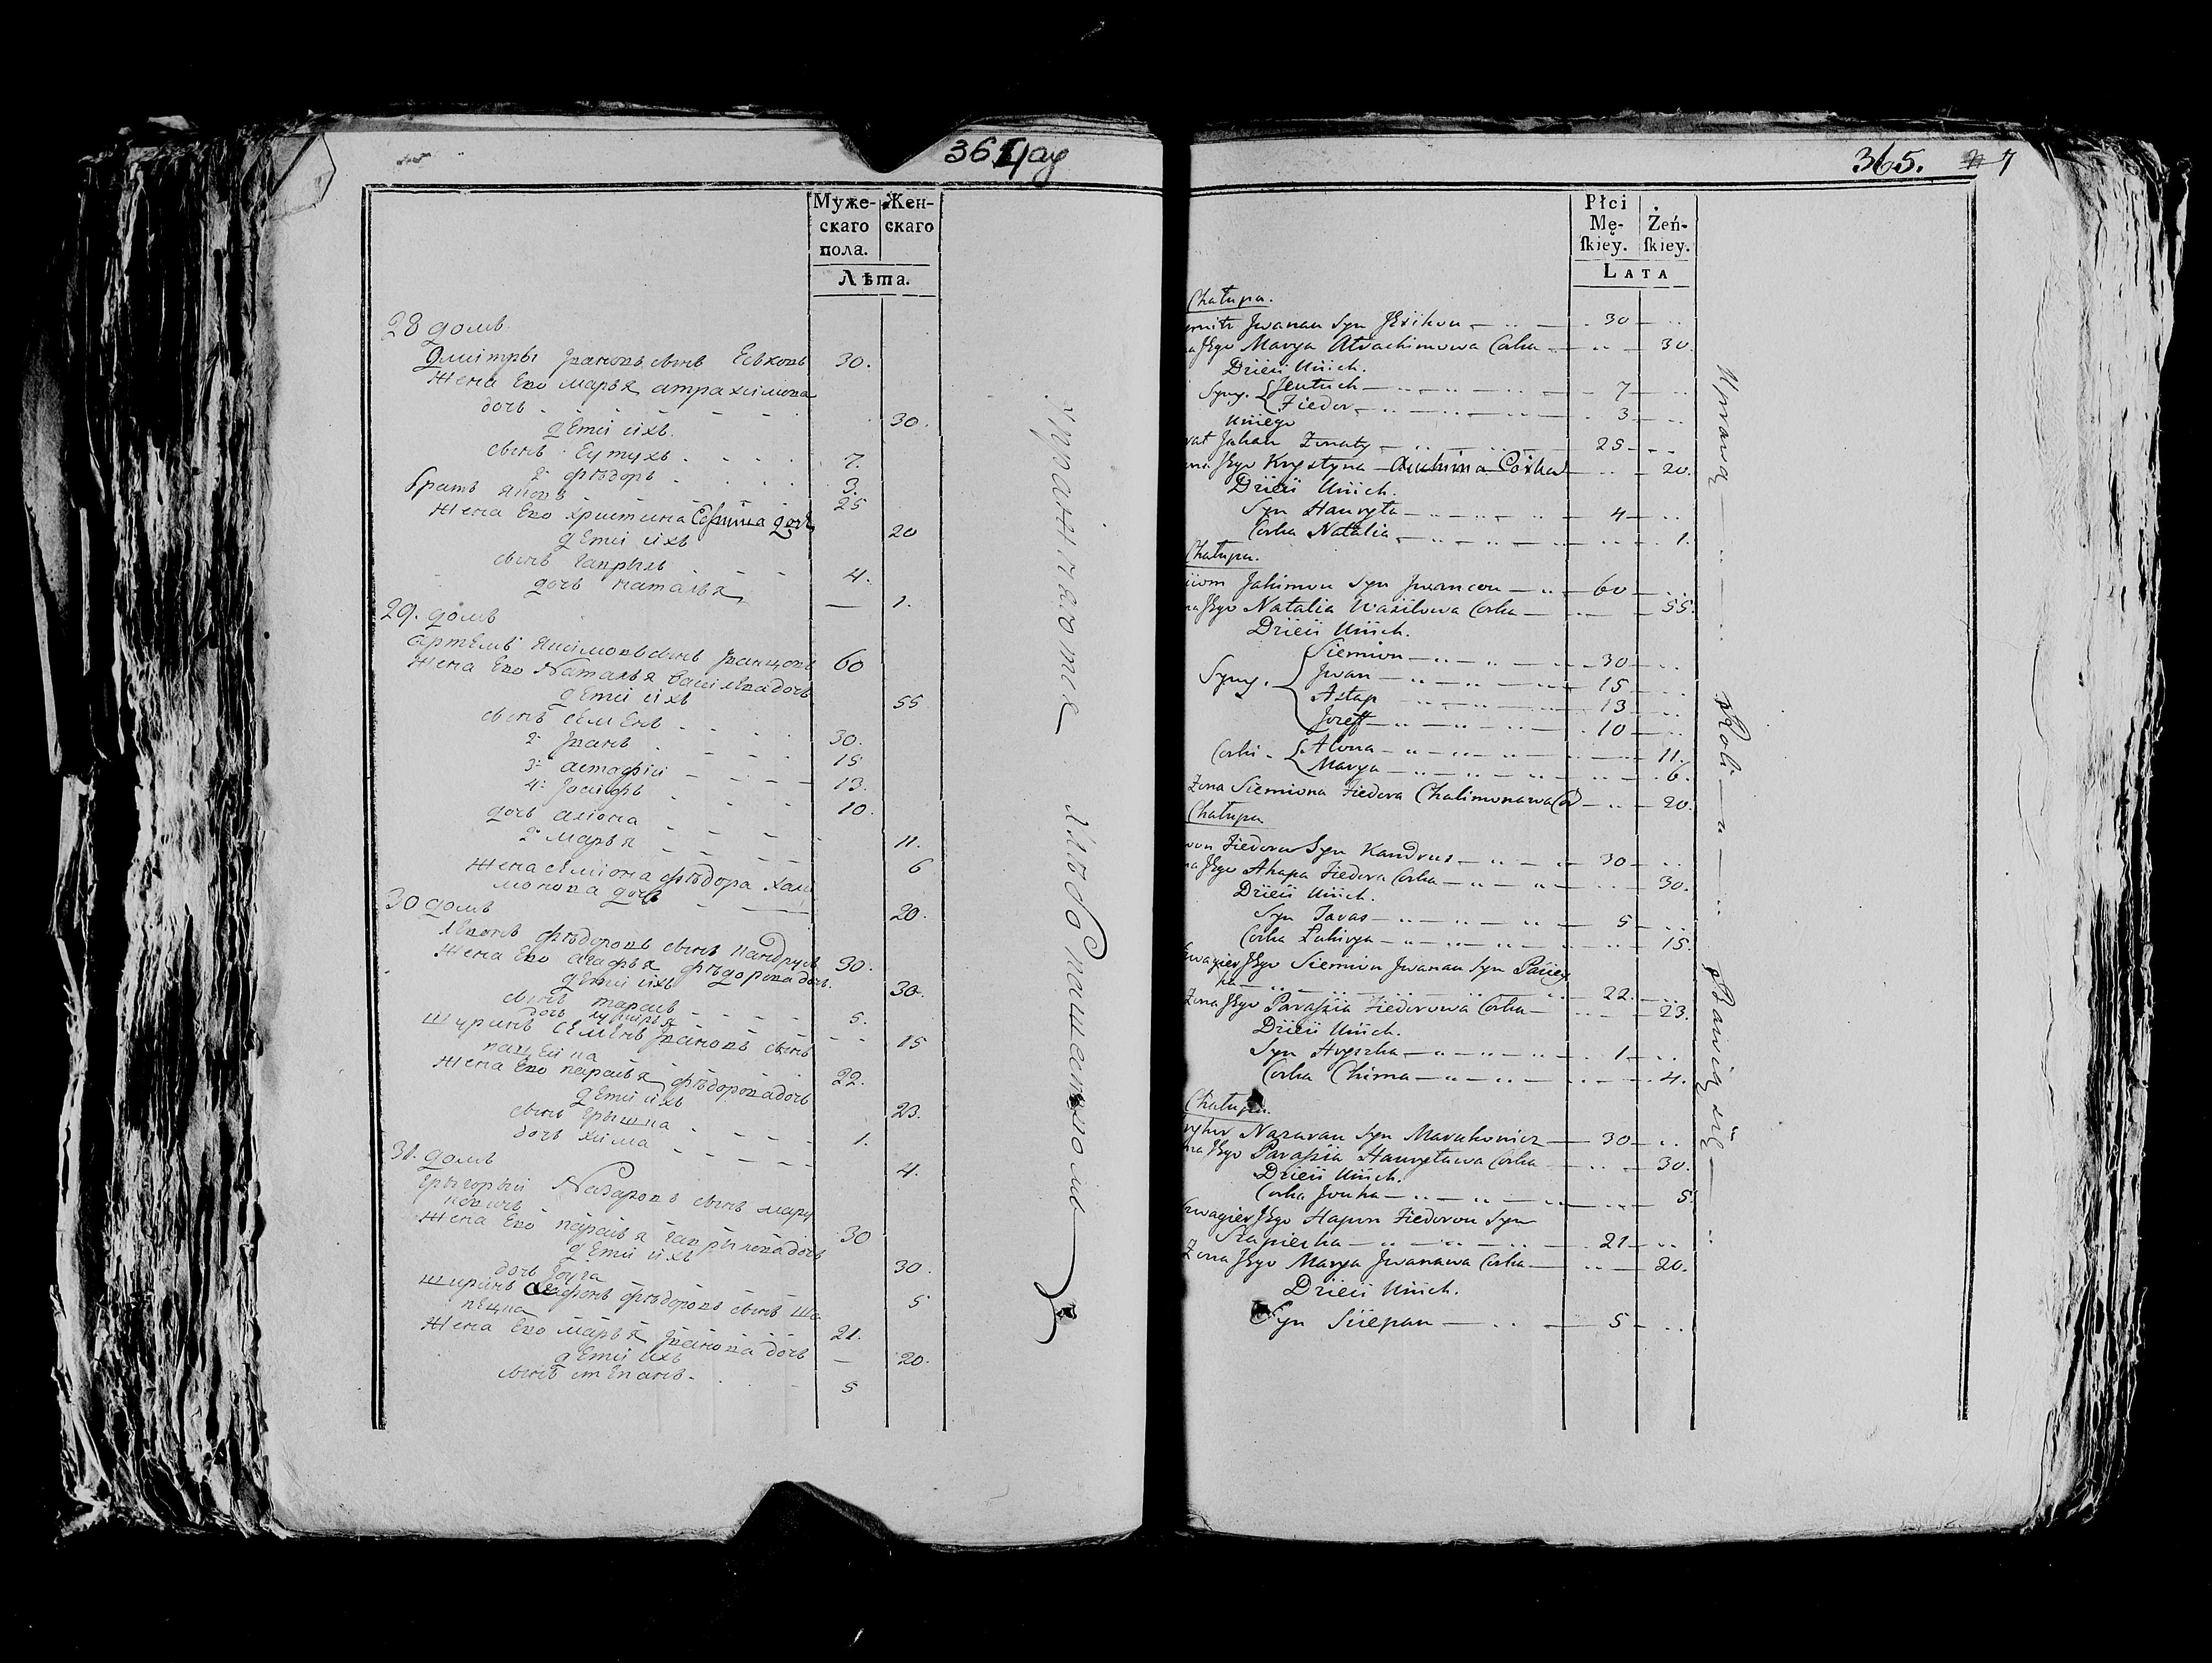 364 ау
Муже-
скаго
пола.
Жен-
скаго
Лѣта.
28 домъ
Дмитры Ивановъ сынъ Есѣковъ 30.
Жена Его марья атрахимова
дочь - - - 30.
дети ихъ.
сынъ Еутухъ - - - 7.
2- фѣдоръ - - - 3.
братъ яковъ 25
Жена Его христина дочь 20
дети ихъ
сынъ гаврыль - - - 4.
дочь наталья — 1.
29. домъ
артемъ якимовъ сынъ Иванцовъ 60
Жена Его Наталья василева дочь
дети ихъ 55
сынъ семенъ - - - 30.
2- Иванъ - - - 15
3- астафiй - - - 13.
4- Iосифъ - - - 10.
дочь алiона - - - 11.
2- марья - - - 6
Жена семiона фѣдора хали
монова дочь - — 20.
30 домъ
фѣдоровъ сынъ кандрусъ 30.
Жена Его агафья фѣдорова дочь.
дети ихъ 30.
сынъ тарасъ - - - 5.
дочь лукирья - - 15
шуринъ семенъ Ивановъ сынъ
22.
Жена Его парасья фѣдорова дочь
дети ихъ 23.
сынъ грышка - - - 1.
дочь хима - - - 4.
31. домъ
грыгорый Назаровъ сынъ мару
ковичъ 30
Жена Его парасья гаврылова дочь
дети ихъ 30.
дочь 5
шуринъ фѣдоровъ сынъ
21.
Жена Его марья Иванова дочь — 20.
дети ихъ
сынъ степанъ. - 5
упражняются хлѣбопашествомъ
365. 7
Płci
Mę-
ſkiey.
Żeń-
ſkiey.
LATA
Chałupa.
Jwanau Syn 30
Jego Marya Atrachimowa Corka 30.
Dzieci Unich.
Syny. Jeutuch 7
Fiedor 3
Uniego
Żonaty 25
Jego Krystyna Corka 20.
Dzieci Unich.
Syn Hauryła 4
Corka Natalia 1.
Chałupa.
Jakimou Syn Jwancou 60
Jego Natalia Wasilowa Corka 55.
Dzieci Unich.
Syny. Siemion 30
Jwan 15
Astap 13
Jozeff 10
Corki - Alona 11.
Marya 6.
Zona Siemiona Fiedora Chalimonawa 20.
Chałupa
Fiedorou Syn Kandrus 30
Jego Ahapa Fiedora Corka 30.
Dzieci Unich.
Syn Taras 5
Corka Łukirya 15.
Jego Siemion Jwanau Syn
22.
Zona Jego Paraſzia Fiedorowa Corka 23.
Dzieci Unich.
Syn Hryszka 1
Corka Chima 4.
Chałupa.
Nazarau Syn Marukowicz 30
Jego Paraſzia Hauryława Corka 30.
Dzieci Unich.
Corka Jouha 5
Jego Hapon Fiedorou Syn
21
Zona Jego Marya Jwanawa Corka 20.
Dzieci Unich.
Syn Sciepan 5
Uprawą Roli Bawią się